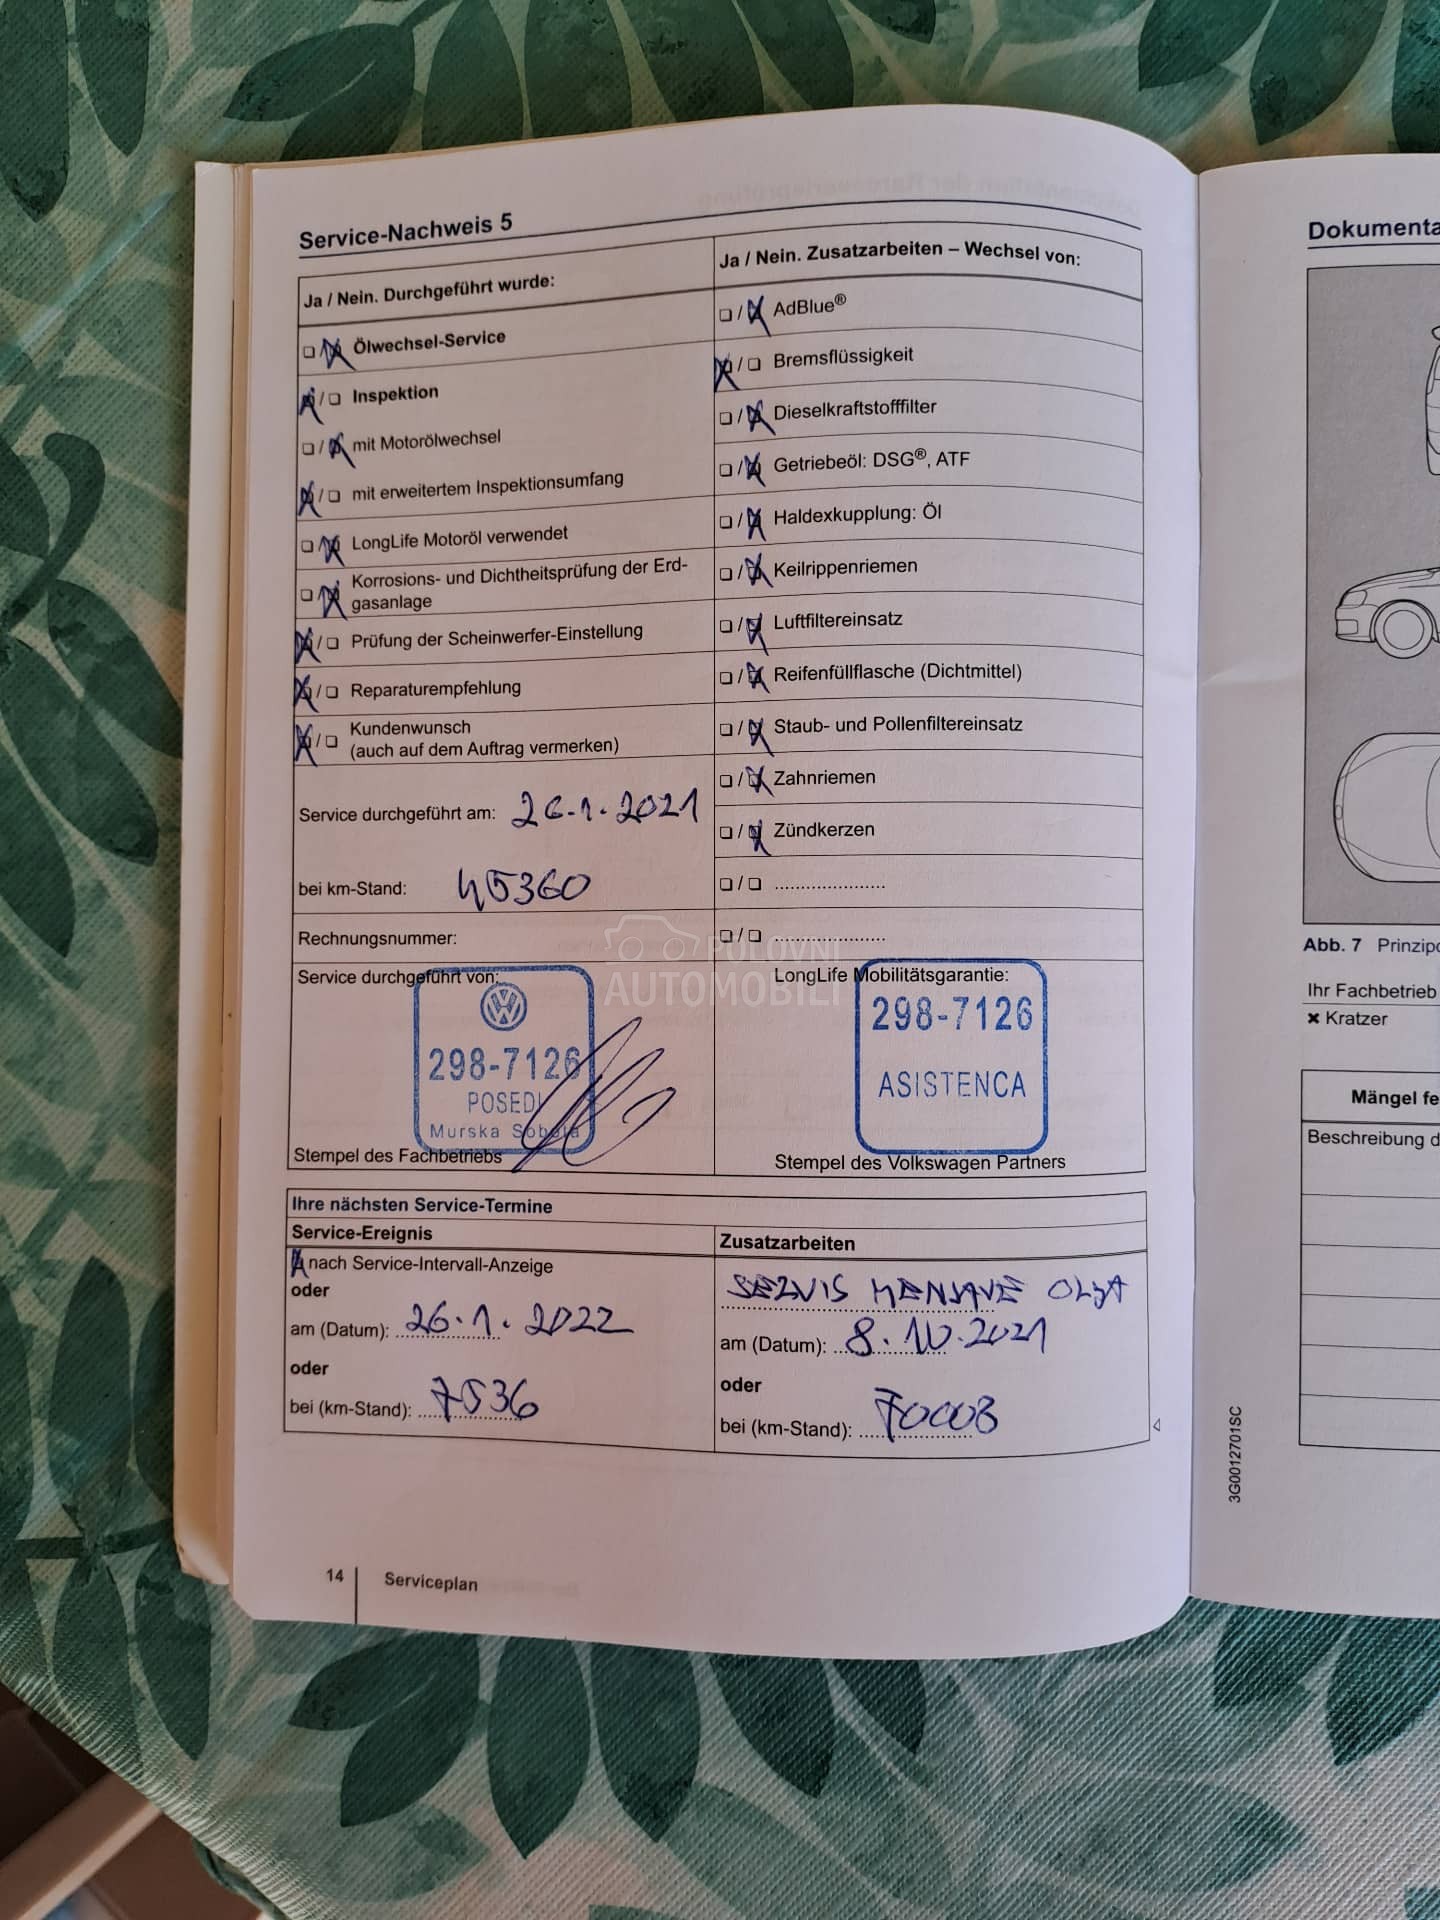 Service-Nachweis 5
Ja / Nein. Durchgeführt wurde:
Ölwechsel-Service
Inspektion
mit Motorölwechsel
mit erweitertem Inspektionsumfang
LongLife Motoröl verwendet
Korrosions- und Dichtheitsprüfung der Erd-
gasanlage
Prüfung der Scheinwerfer-Einstellung
Reparaturempfehlung
Kundenwunsch
(auch auf dem Auftrag vermerken)
Service durchgeführt am: 26.1.2021
bei km-Stand: 45360
Rechnungsnummer:
Service durchgeführt von:
298-7126
POSEDI
Murska Sobota
Stempel des Fachbetriebs
Ja / Nein. Zusatzarbeiten – Wechsel von:
AdBlue®
Bremsflüssigkeit
Dieselkraftstofffilter
Getriebeöl: DSG®, ATF
Haldexkupplung: Öl
Keilrippenriemen
Luftfiltereinsatz
Reifenfüllflasche (Dichtmittel)
Staub- und Pollenfiltereinsatz
Zahnriemen
Zündkerzen
LongLife Mobilitätsgarantie:
298-7126
ASISTENCA
Stempel des Volkswagen Partners
POLOVNI
AUTOMOBILI
Ihre nächsten Service-Termine
Service-Ereignis
nach Service-Intervall-Anzeige
oder
am (Datum): 26.1.2022
oder
bei (km-Stand): 7536
Zusatzarbeiten
SERVIS MENJAVE OLJA
am (Datum): 8.10.2021
oder
bei (km-Stand): 70003
14
Serviceplan
Dokumenta
Abb. 7 Prinzip
Ihr Fachbetrieb
× Kratzer
Mängel fe
Beschreibung d
3G0012701SC